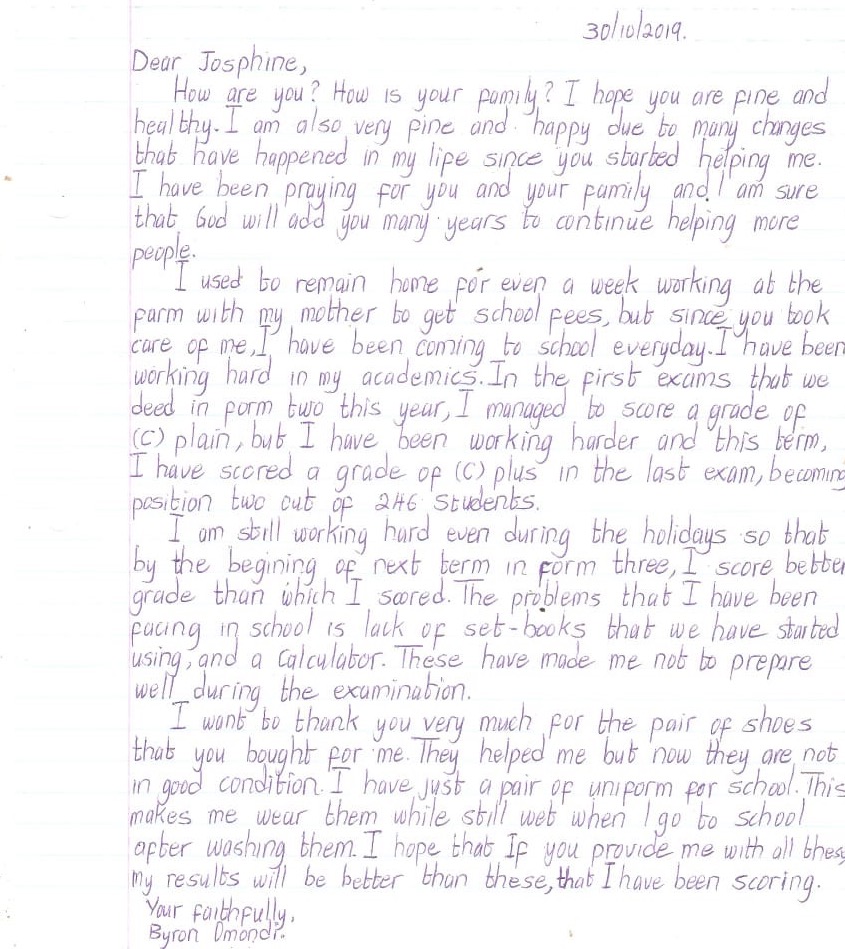 30/10/2019.
Dear Josphine,
How are you? How is your family? I hope you are fine and
healthy. I am also very fine and happy due to many changes
that have happened in my life since you started helping me.
I have been praying for you and your family and I am sure
that God will add you many years to continue helping more
people.
I used to remain home for even a week working at the
farm with my mother to get school fees, but since you took
care of me, I have been coming to school everyday. I have been
working hard in my academics. In the first exams that we
deed in form two this year, I managed to score a grade of
(C) plain, but I have been working harder and this term,
I have scored a grade of (C) plus in the last exam, becoming
position two out of 246 students.
I am still working hard even during the holidays so that
by the begining of next term in form three, I score better
grade than which I scored. The problems that I have been
facing in school is lack of set-books that we have started
using, and a calculator. These have made me not to prepare
well during the examination.
I want to thank you very much for the pair of shoes
that you bought for me. They helped me but now they are not
in good condition. I have just a pair of uniform for school. This
makes me wear them while still wet when I go to school
after washing them. I hope that If you provide me with all these,
my results will be better than these, that I have been scoring.
Your faithfully,
Byron Omondi.